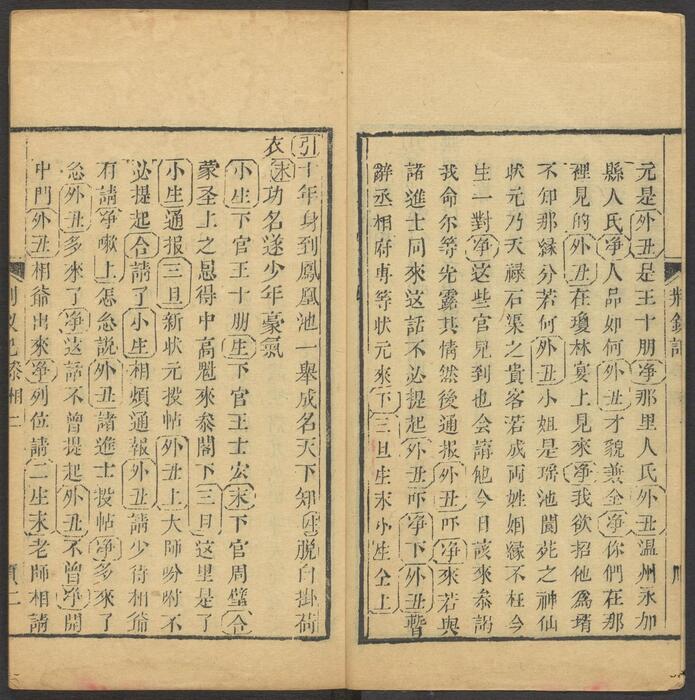 元是外丑是王十朋净那里人氏外丑温州永加
縣人氏净人品如何外丑才貌兼全净你們在那
裡見的外丑在瓊林宴上見來净我欲招他爲壻
不知那縁分若何外丑小姐是瑶池閬苑之神仙
狀元乃天祿石渠之貴客若成両姓姻縁不枉今
生一對净这些官見到也会講他今日該來叅謁
我命尔等先露其情然後通报外丑吓净來若與
諸進士同來这話不必提起外丑吓净下外丑暫
辭丞相府専等狀元來下三旦生末小生仝上
荆釵記
引十年身到鳳凰池一舉成名天下知生脱白掛荷
衣末功名遂少年豪氣
小生下官王十朋生下官王士宏末下官周璧合
蒙圣上之恩得中高魁來叅閣下三旦这里是了
小生通报三旦新狀元投帖外丑上大師吩咐不
必提起合請了小生相煩通報外丑請少待相爺
有請净嗽上怎么説外丑諸進士投帖净多來了
么外丑多來了净这話不曾提起外丑不曾净開
中門外丑相爺出來净列位請二生末老師相請